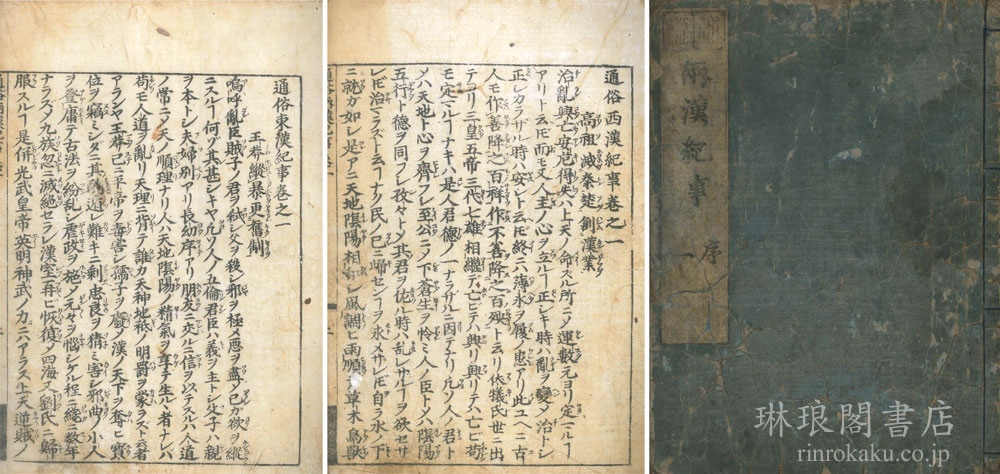 兩漢紀事 序 一
通俗西漢紀事卷之一
高祖滅秦楚創漢業
治亂興亡安危得失ハ上天ノ命スル所ニメ運數元ヨリ定マルヿ
アリト云𪜈而モ又人主ノ心ヲ立ルヿ正シキ時ハ亂ヲ變メ治トシ
正シカラザル時ハ安シト云𪜈終ニ薄氷ヲ履ノ患アリ此ユヘニ古
人モ作善降之百祥作不善降之百殃ト云リ依犠氏世ニ出
テヨリ三皇五帝三代七雄相繼テ亡ビテハ興リ興リテハ亡ビ苟
モ定マルヿナキハ是人君德ノ一ナラサルニ因テナリ凡ソ人君
メハ天地ト心ヲ齊フシ至公ニメ下蒼生ヲ怜ミ人ノ臣トメハ陰陽
五行ト德ヲ同フシ孜々トメ其君ヲ佐ル時ハ乱レザルヿヲ欲セサ
レ𪜈治ラズト云ヿナク民ノ己ニ歸センヿヲ求メサレ𪜈自ラ水ノ下
ニ就ガ如シ是アニ天地陰陽相和シ風調ヒ雨順ヒ草木鳥獸
通俗東漢紀事卷之一
王莽縱暴更舊制
嗚呼亂臣賊子ノ君ヲ弑シ父ヲ殺シ邪ヲ極メ惡ヲ盡メ己カ欲ヲ縱
ニスルヿ何ゾ其甚シキヤ凡ソ人ノ五倫君臣ハ義ヲ主トシ父子ハ親
ヲ本トシ夫婦別アリ長幼序アリ朋友ニ交ルニ信ヲ以テスルハ人道
ノ常ニメ天ノ順理ナリ人ハ天地陰陽ノ精氣ヲ享テ生ルヽ者ナレバ
苟モ人道ヲ亂リ天理ニ背テ誰カ天神地祇ノ明罰ヲ蒙ラズト云者
アランヤ王莽已ニ平帝ヲ毒害シ孺子ヲ廢メ漢ノ天下ヲ奪ヒ寶
位ヲ竊ミシダニ其罪遁レ難キニ剩忠良ヲ猜ミ害シ邪曲ノ小人
ヲ登庸テ古法ヲ紛乱シ虐政ヲ施メ元々ヲ惱シケル程ニ纔ニ數年
ナラズメ九族忽ニ滅絕セラレ漢室再ヒ恢復メ四海又劉氏ニ歸
服スルヿ是併光武皇帝英明神武ノ力ニハアラス上天逆賊ノ
琳琅閣書店
rinrokaku.co.jp